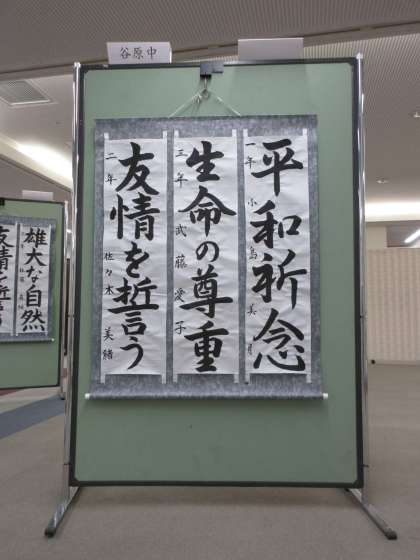 谷原中
平和祈念
一年 小島美月
生命の尊重
三年 武藤愛子
友情を誓う
二年 佐々木美緒
雄大な自然
友情を誓う